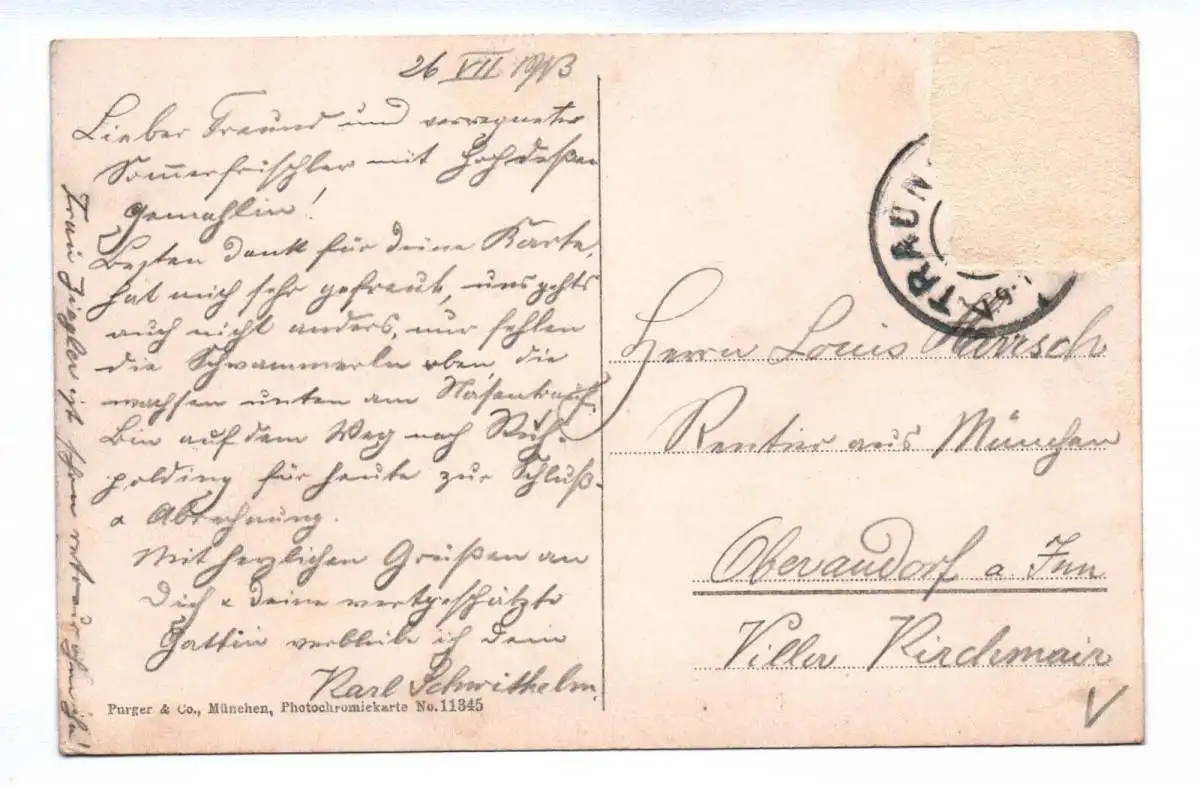 26 VII 1913
Lieber Freund und verregneter
Sommerfrischler mit hochdeßen
Gemahlin!
Besten Dank für deine Karte,
hat mich sehr gefreut, uns gehts
auch nicht anders, nur fehlen
die Schwammerln oben, die
wachsen unten am
Bin auf dem Weg nach Ruh-
polding für heute zur Schluß-
a Abrechnung.
Mit herzlichen Grüßen an
Dich & deine wertgeschätzte
Gattin verbleibe ich dein
Karl Schwithelm
Frau Ziegler ist schon
Purger & Co., München, Photochromiekarte No. 11345
TRAUN
Herrn Louis
Rentier aus München
Oberaudorf a. Inn
Villa Kirchmair